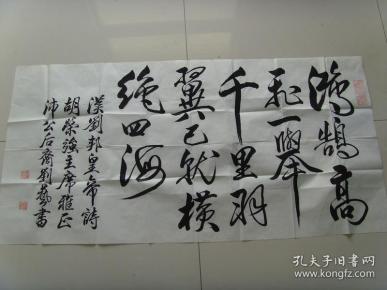 鴻鵠高
飛一舉
千里羽
翼已就橫
絕四海
漢劉邦皇帝詩
胡榮錦主席雅正
沛公后裔劉藝書
孔夫子旧书网
www.kongfz.com